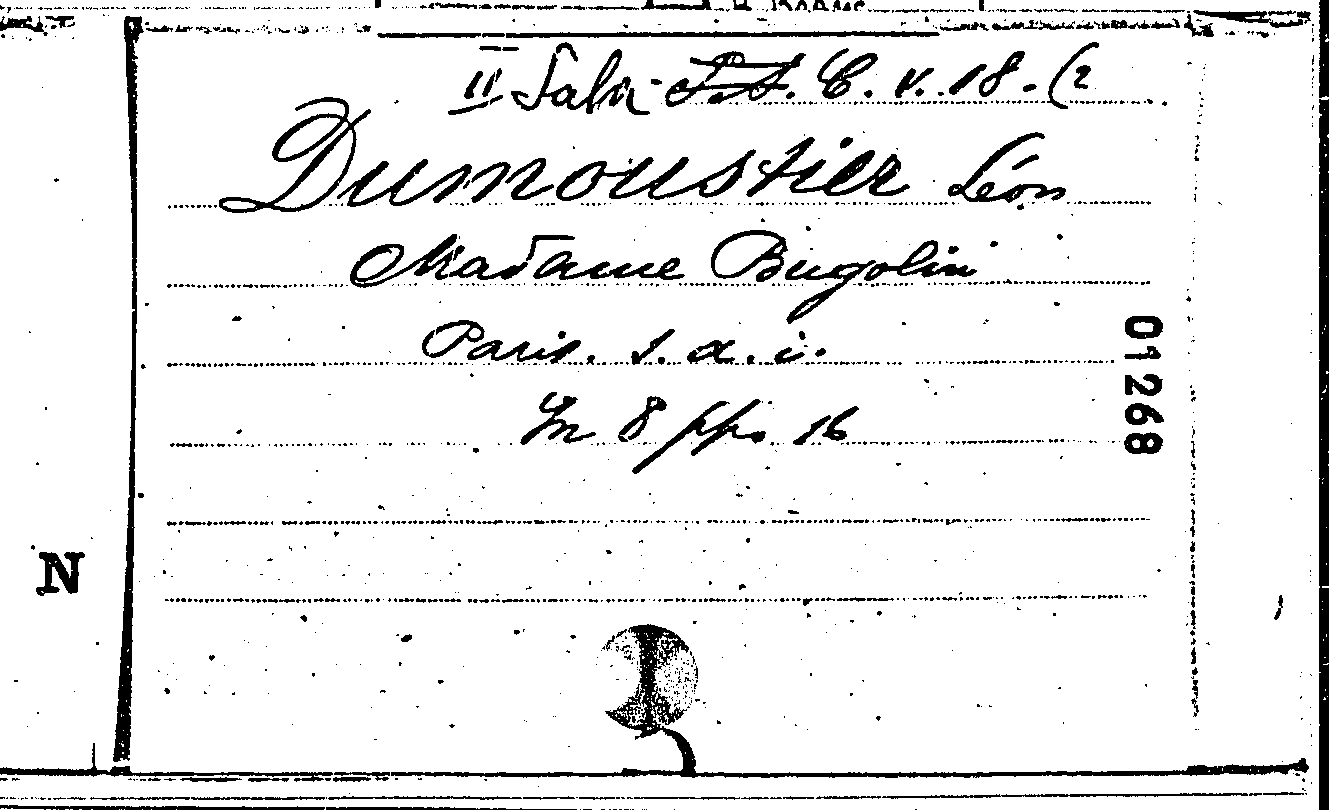 II Sala F.A. C. V. 18. (2
Dumoustier Léon
Madame Bugolin
Paris. s. a. i.
In 8 pp. 16
01268
N